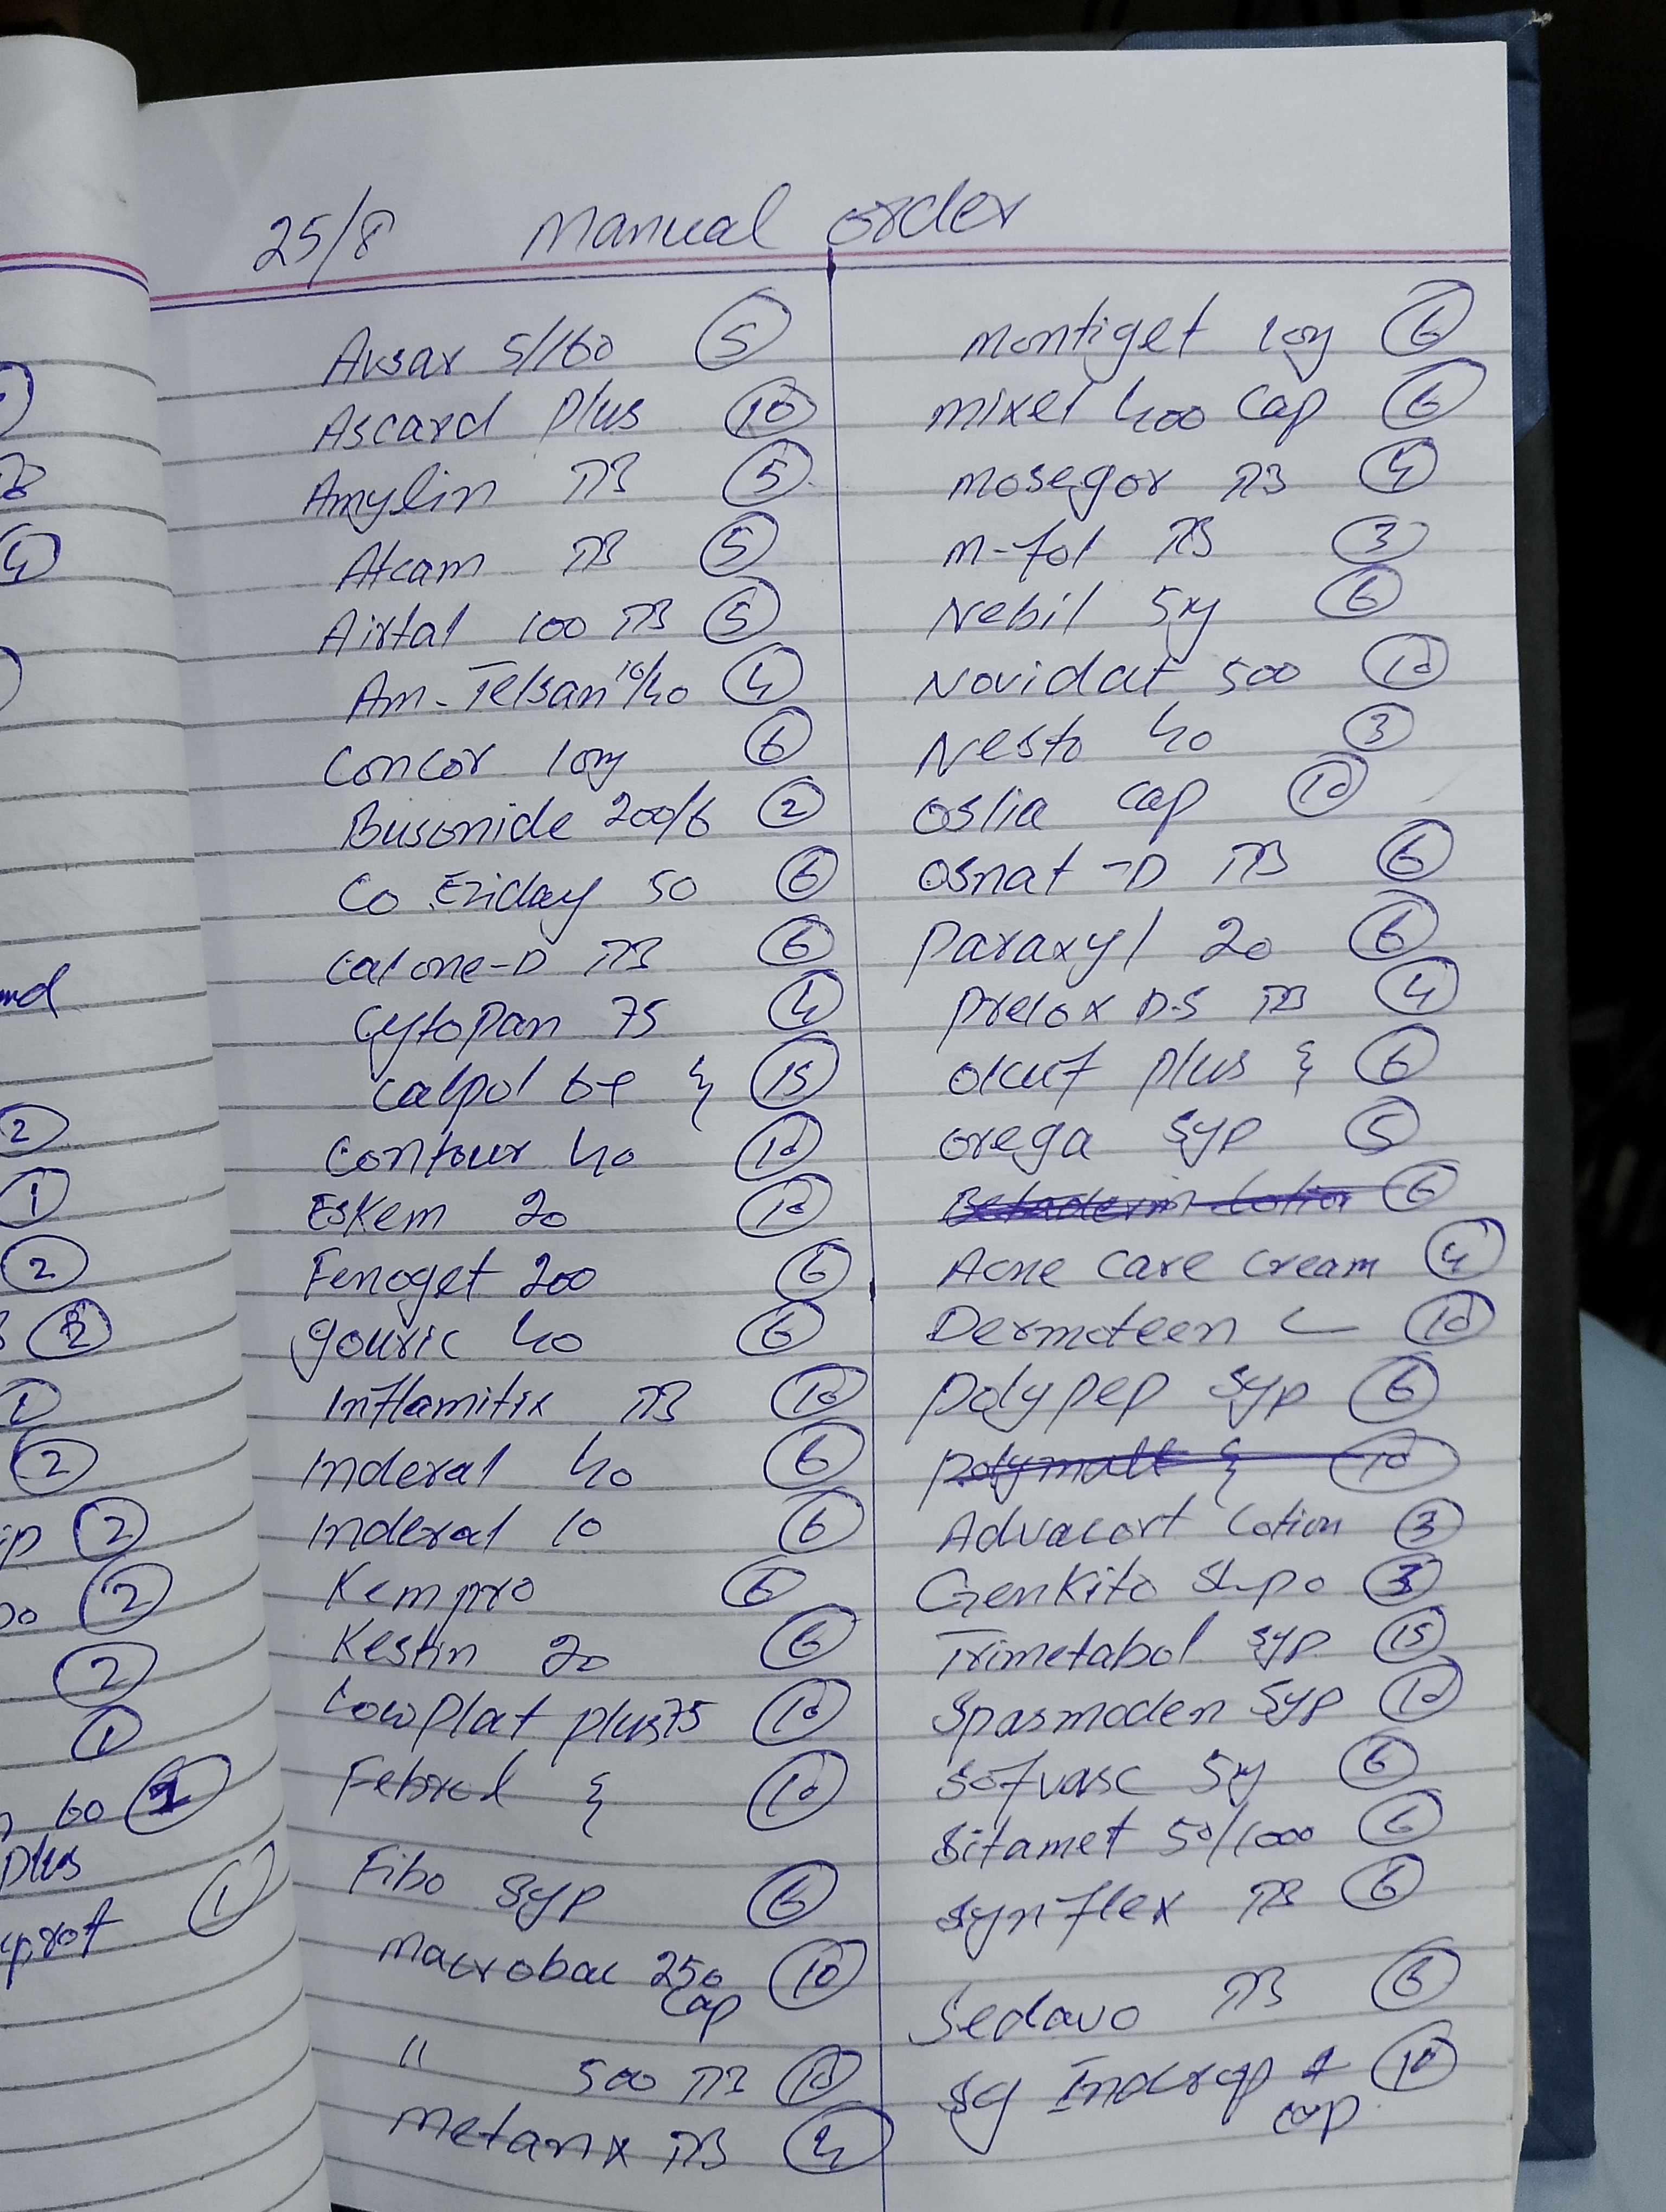 25/8 Manual order
Avsar 5/160 5
Ascard plus 10
Amylin TB 5
Atcam TB 5
Airtal 100 TB 5
Am-Telsan 10/40 4
Concor 10mg 6
Busonide 200/6 2
Co Eziday 50 6
Calone-D TB 6
Cytopan 75 4
Calpol 6+ 15
Contour 40 10
Eskem 20 10
Fenoget 200 6
gouric 40 6
Inflamitix TB 10
Inderal 40 6
Inderal 10 6
Kempro 6
Kestin 20 6
Lowplat plus 75 10
Febrol 10
Fibo syp 6
Macrobac 250 10
cap
" 500 TB 10
Metanx TB 4
Montiget 10mg 6
mixel 400 cap 6
mosegor TB 4
m-fol TB 3
Nebil 5mg 6
Novidat 500 10
Nesto 40 3
Oslia cap 10
Osnat-D TB 6
Paraxyl 20 6
Prelox D.S TB 4
olcuf plus 6
orega syp 5
Betaderm Lotion 6
Acne care cream 4
Dermoteen 10
Polypep syp 6
Polymalt 10
Advacort Lotion 3
Genkito 3
Trimetabol syp 15
Spasmoden syp 10
Sofvasc 5mg 6
Sitamet 50/1000 6
Synflex TB 6
Sedavo TB 6
10
cap
2
1
2
2
1
2
2
2
2
1
60
plus
1